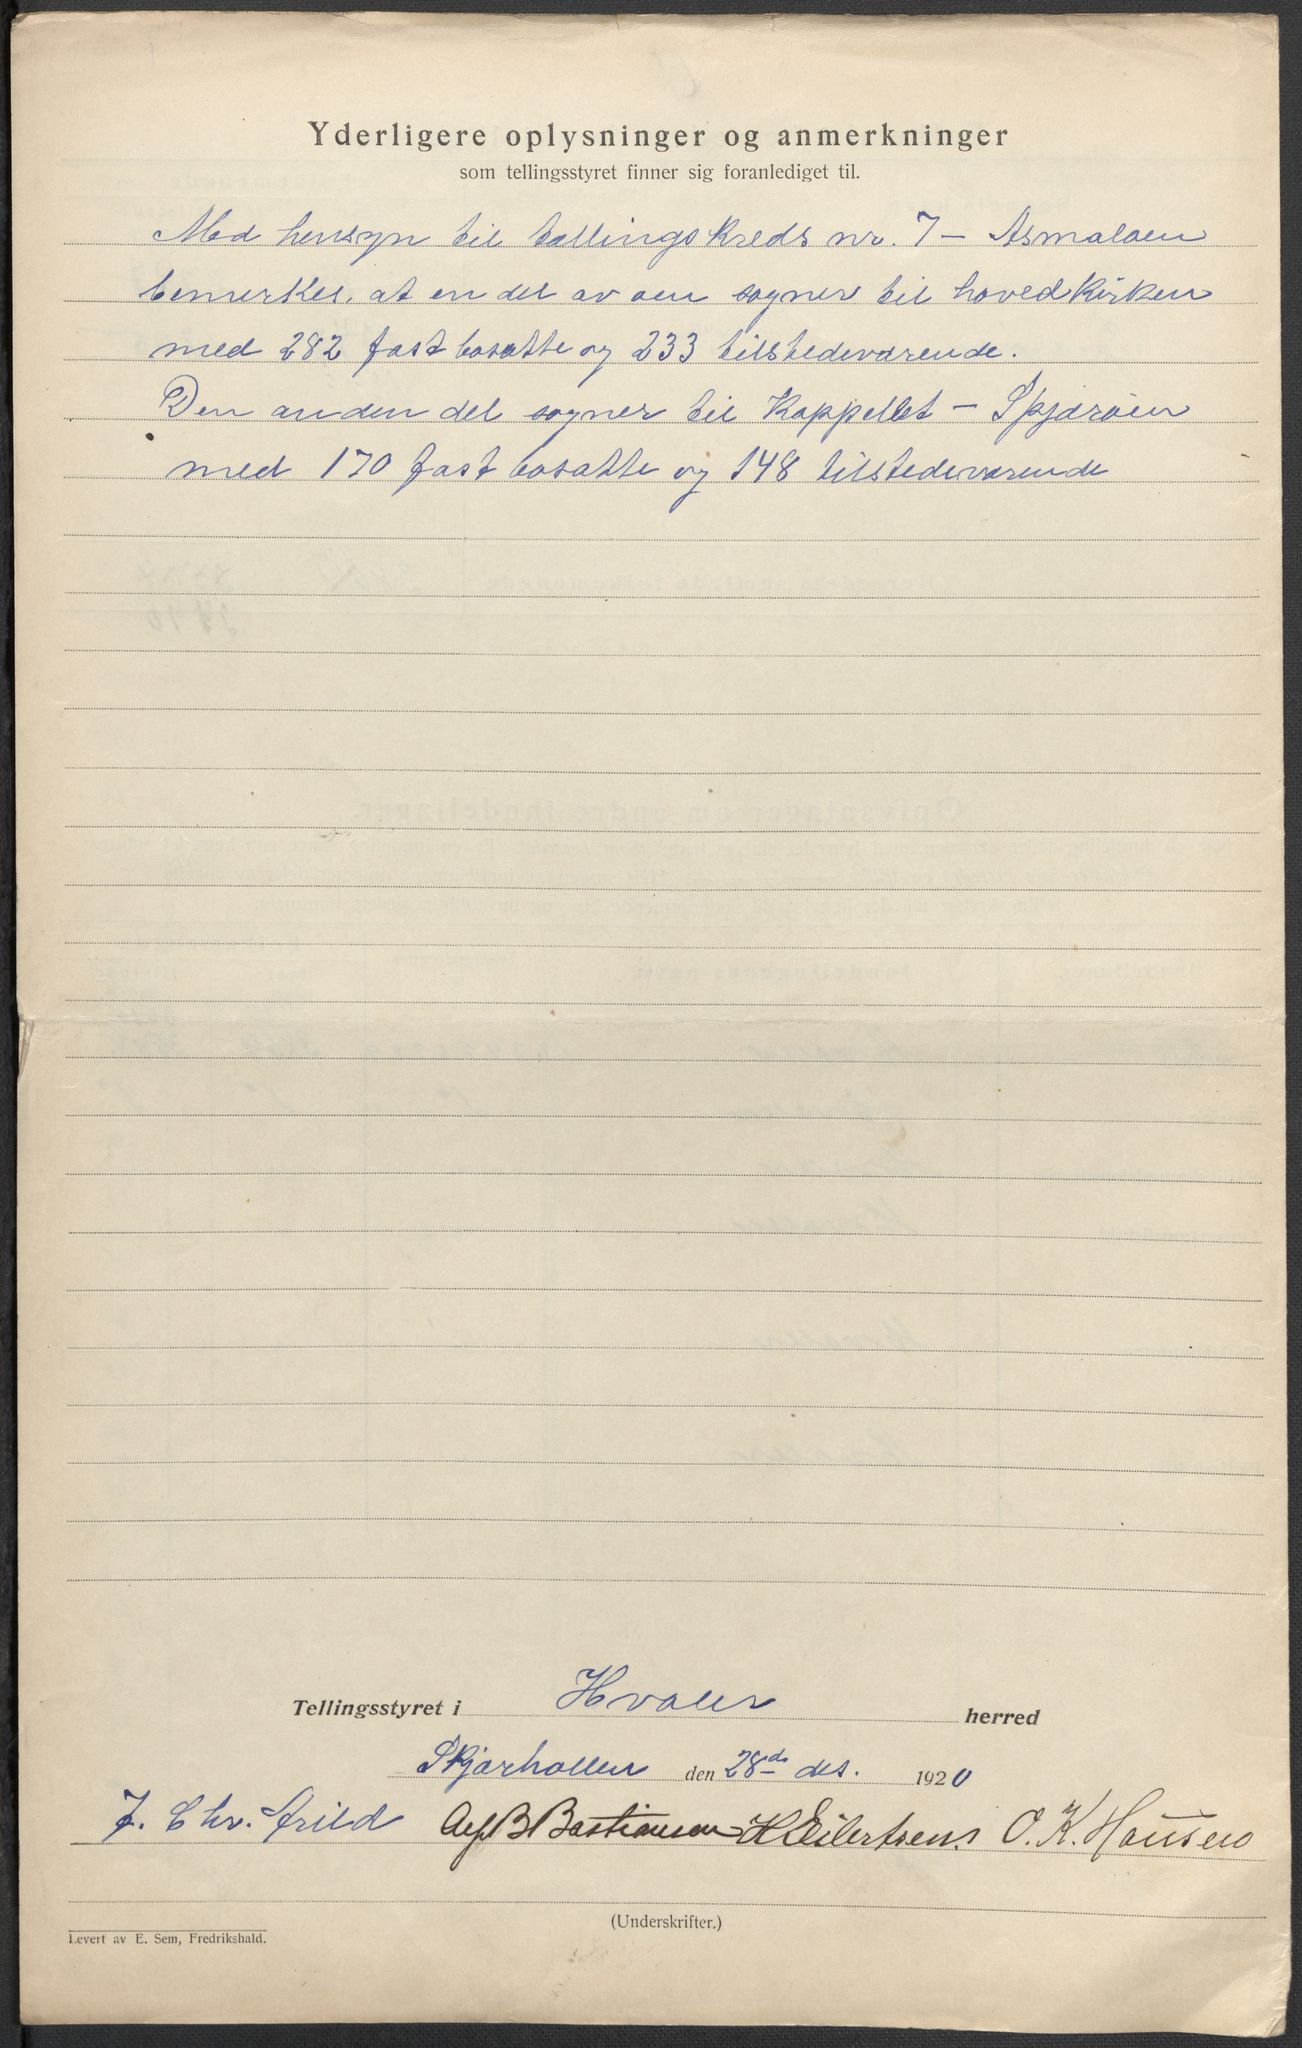 Yderligere oplysninger og anmerkninger
som tellingsstyret finner sig foranlediget til.
Med hensyn til tællingskreds nr. 7 – Asmaløen
bemerkes, at en del av øen sogner til hovedkirken
med 282 fast bosatte og 233 tilstedeværende.
Den anden del sogner til Kappellet – Spjærøen
med 170 fast bosatte og 148 tilstedeværende
Tellingsstyret i Hvaler herred
Skjærhallen den 28de des. 1920
J. Chr. Arild Alf B Bastiansen H Eilertsen O. K. Hansen
(Underskrifter.)
Levert av E. Sem, Fredrikshald.